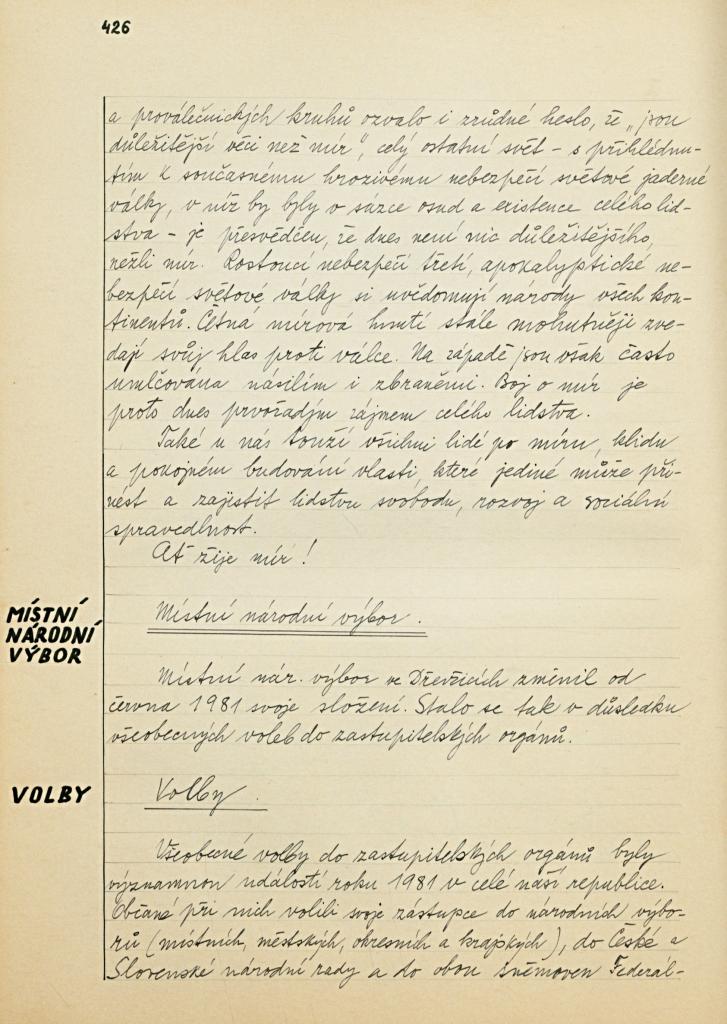 426
a proválečnických kruhů ozvalo i zrůdné heslo, že „jsou
důležitější věci než mír", celý ostatní svět - s přihlédnu-
tím k současnému hrozivému nebezpečí světové jaderné
války, v níž by byly v sázce osud a existence celého lid-
stva - je přesvědčen, že dnes není nic důležitějšího,
nežli mír. Rostoucí nebezpečí třetí, apokalyptické ne-
bezpečí světové války si uvědomují národy všech kon-
tinentů. Četná mírová hnutí stále mohutněji zve-
dají svůj hlas proti válce. Na západě jsou však často
umlčována násilím i zbraněmi. Boj o mír je
proto dnes prvořadým zájmem celého lidstva.
Také u nás touží všichni lidé po míru, klidu
a pokojném budování vlasti, které jedině může při-
nést a zajistit lidstvu svobodu, rozvoj a sociální
spravedlnost.
Ať žije mír!
MÍSTNÍ
NÁRODNÍ
VÝBOR
Místní národní výbor.
Místní nár. výbor ve Dřevčicích změnil od
června 1981 svoje složení. Stalo se tak v důsledku
všeobecných voleb do zastupitelských orgánů.
VOLBY
Volby.
Všeobecné volby do zastupitelských orgánů byly
významnou událostí roku 1981 v celé naší republice.
Občané při nich volili svoje zástupce do národních výbo-
rů (místních, městských, okresních a krajských), do České a
Slovenské národní rady a do obou sněmoven Federál-